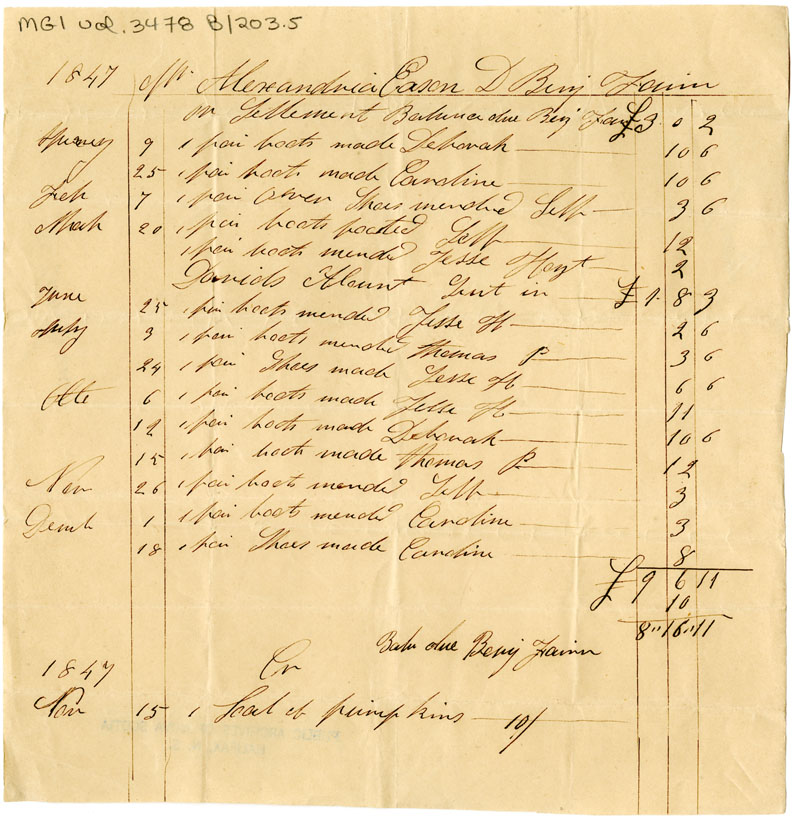 MG1 vol. 3478 B/203.5
1847 Alexandria Eason D Benj Fairn
on Settlement Balance due Benj Fairn £3 0 2
9 1 pair boots made Deborah 10 6
25 1 pair boots made Caroline 10 6
Feb 7 1 pair over Shoes mended Self 3 6
March 20 1 pair boots footed Self 12
1 pair boots mended Jesse Hoyt 2
Davids Acount Sent in £1 8 3
June 25 1 pair boots mended Jesse H 2 6
July 3 1 pair boots mended thomas P 3 6
24 1 pair Shoes made Jesse H 6 6
Octe 6 1 pair boots made Jesse H 11
12 1 pair boots made Deborah 10 6
15 1 pair boots made thomas P 12
Nov 26 1 pair boots mended Self 3
Decmb 1 1 pair boots mended Caroline 3
18 1 pair Shoes made Caroline 8
£ 9 6 11
10
8" 16" 11
Baln due Benj Fairn
1847 Cr
Nov 15 1 Load of pumpkins 10/